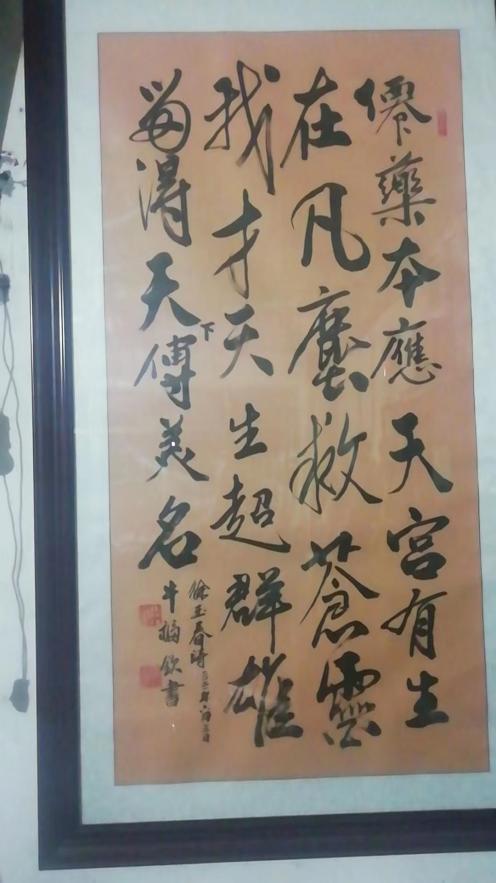 僊藥本應天宮有生
在凡塵救蒼靈
我才天生超群雄
留得天下傳美名
徐玉春詩
牛 書